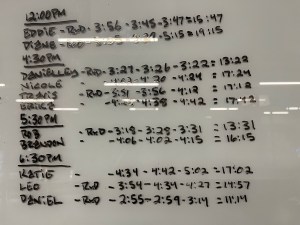 12:00PM
EDDIE - RxD - 3:56 - 3:45 - 3:47 = 15:47
DIANE 5:15 = 19:15
4:30PM
DANIELLE - RxD - 3:27 - 3:26 - 3:22 = 13:22
NICOLE - 4:24 = 17:24
TRAVIS - RxD - 3:56 - 4:12 = 17:12
ERIKA - 4:38 - 4:42 = 17:42
5:30PM
ROB - RxD - 3:18 - 3:28 - 3:31 = 13:31
BRENDON - 4:06 - 4:02 - 4:15 = 16:15
6:30PM
KATIE - 4:34 - 4:42 - 5:02 = 17:02
LEO - RxD - 3:54 - 4:34 - 4:27 = 14:57
DANIEL - RxD - 2:55 - 2:59 - 3:14 = 11:14